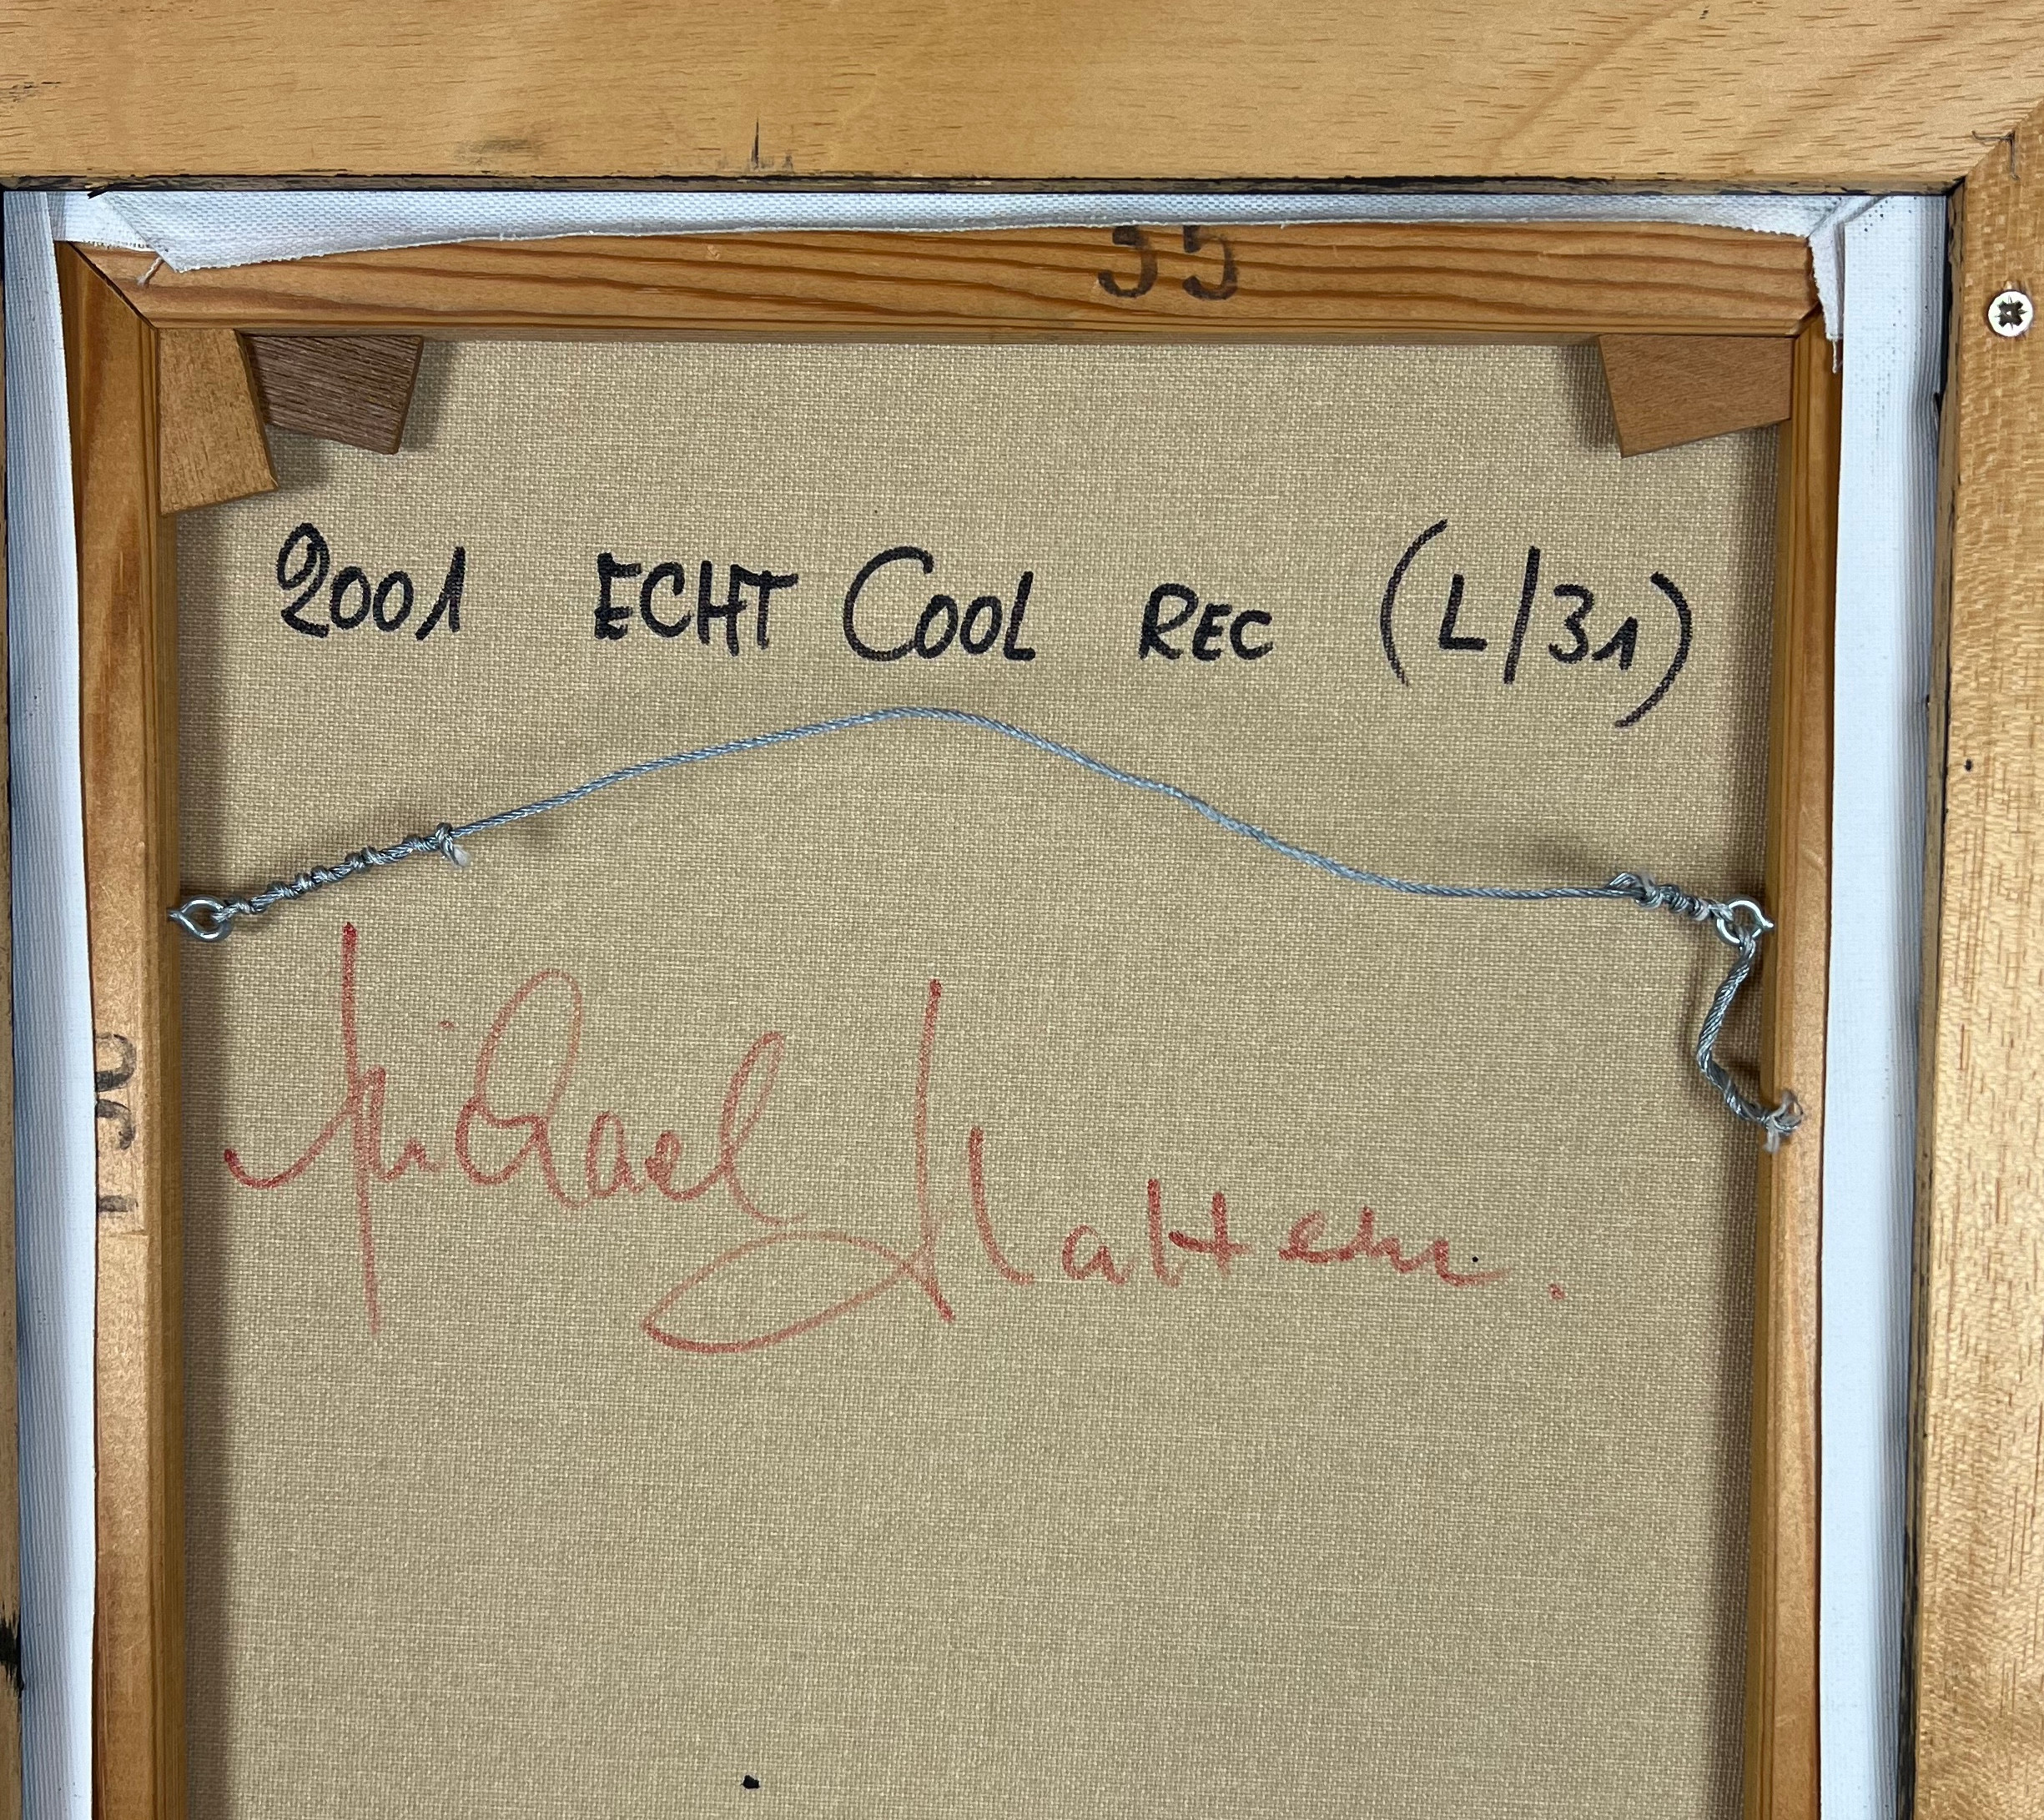 35
2001 ECHT COOL REC (L/31)
Michael Mattern.